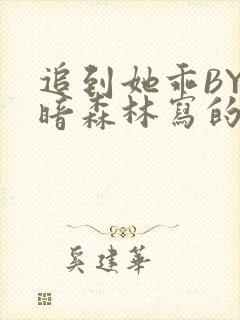 追到她乖BY
暗森林寫的
奚建華